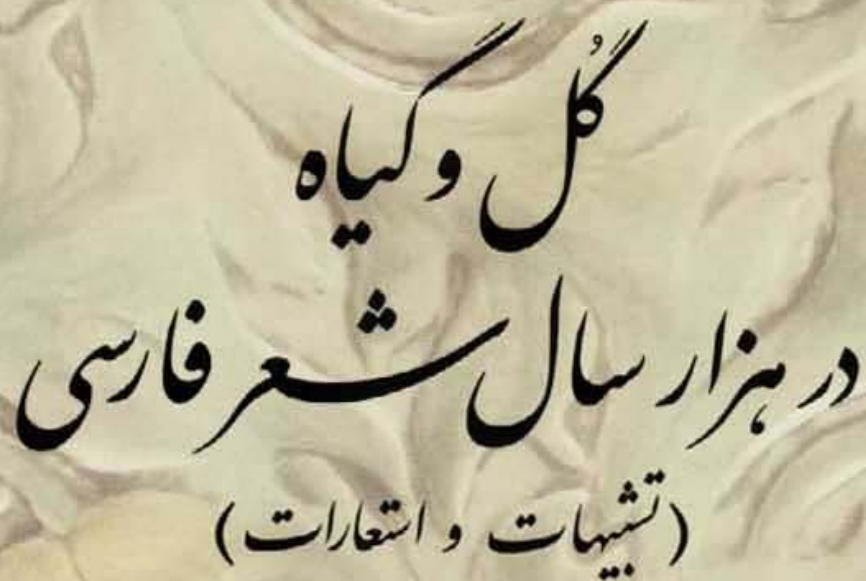 گُل و گیاه
در هزار سال شعر فارسی
(تشبیهات و استعارات)